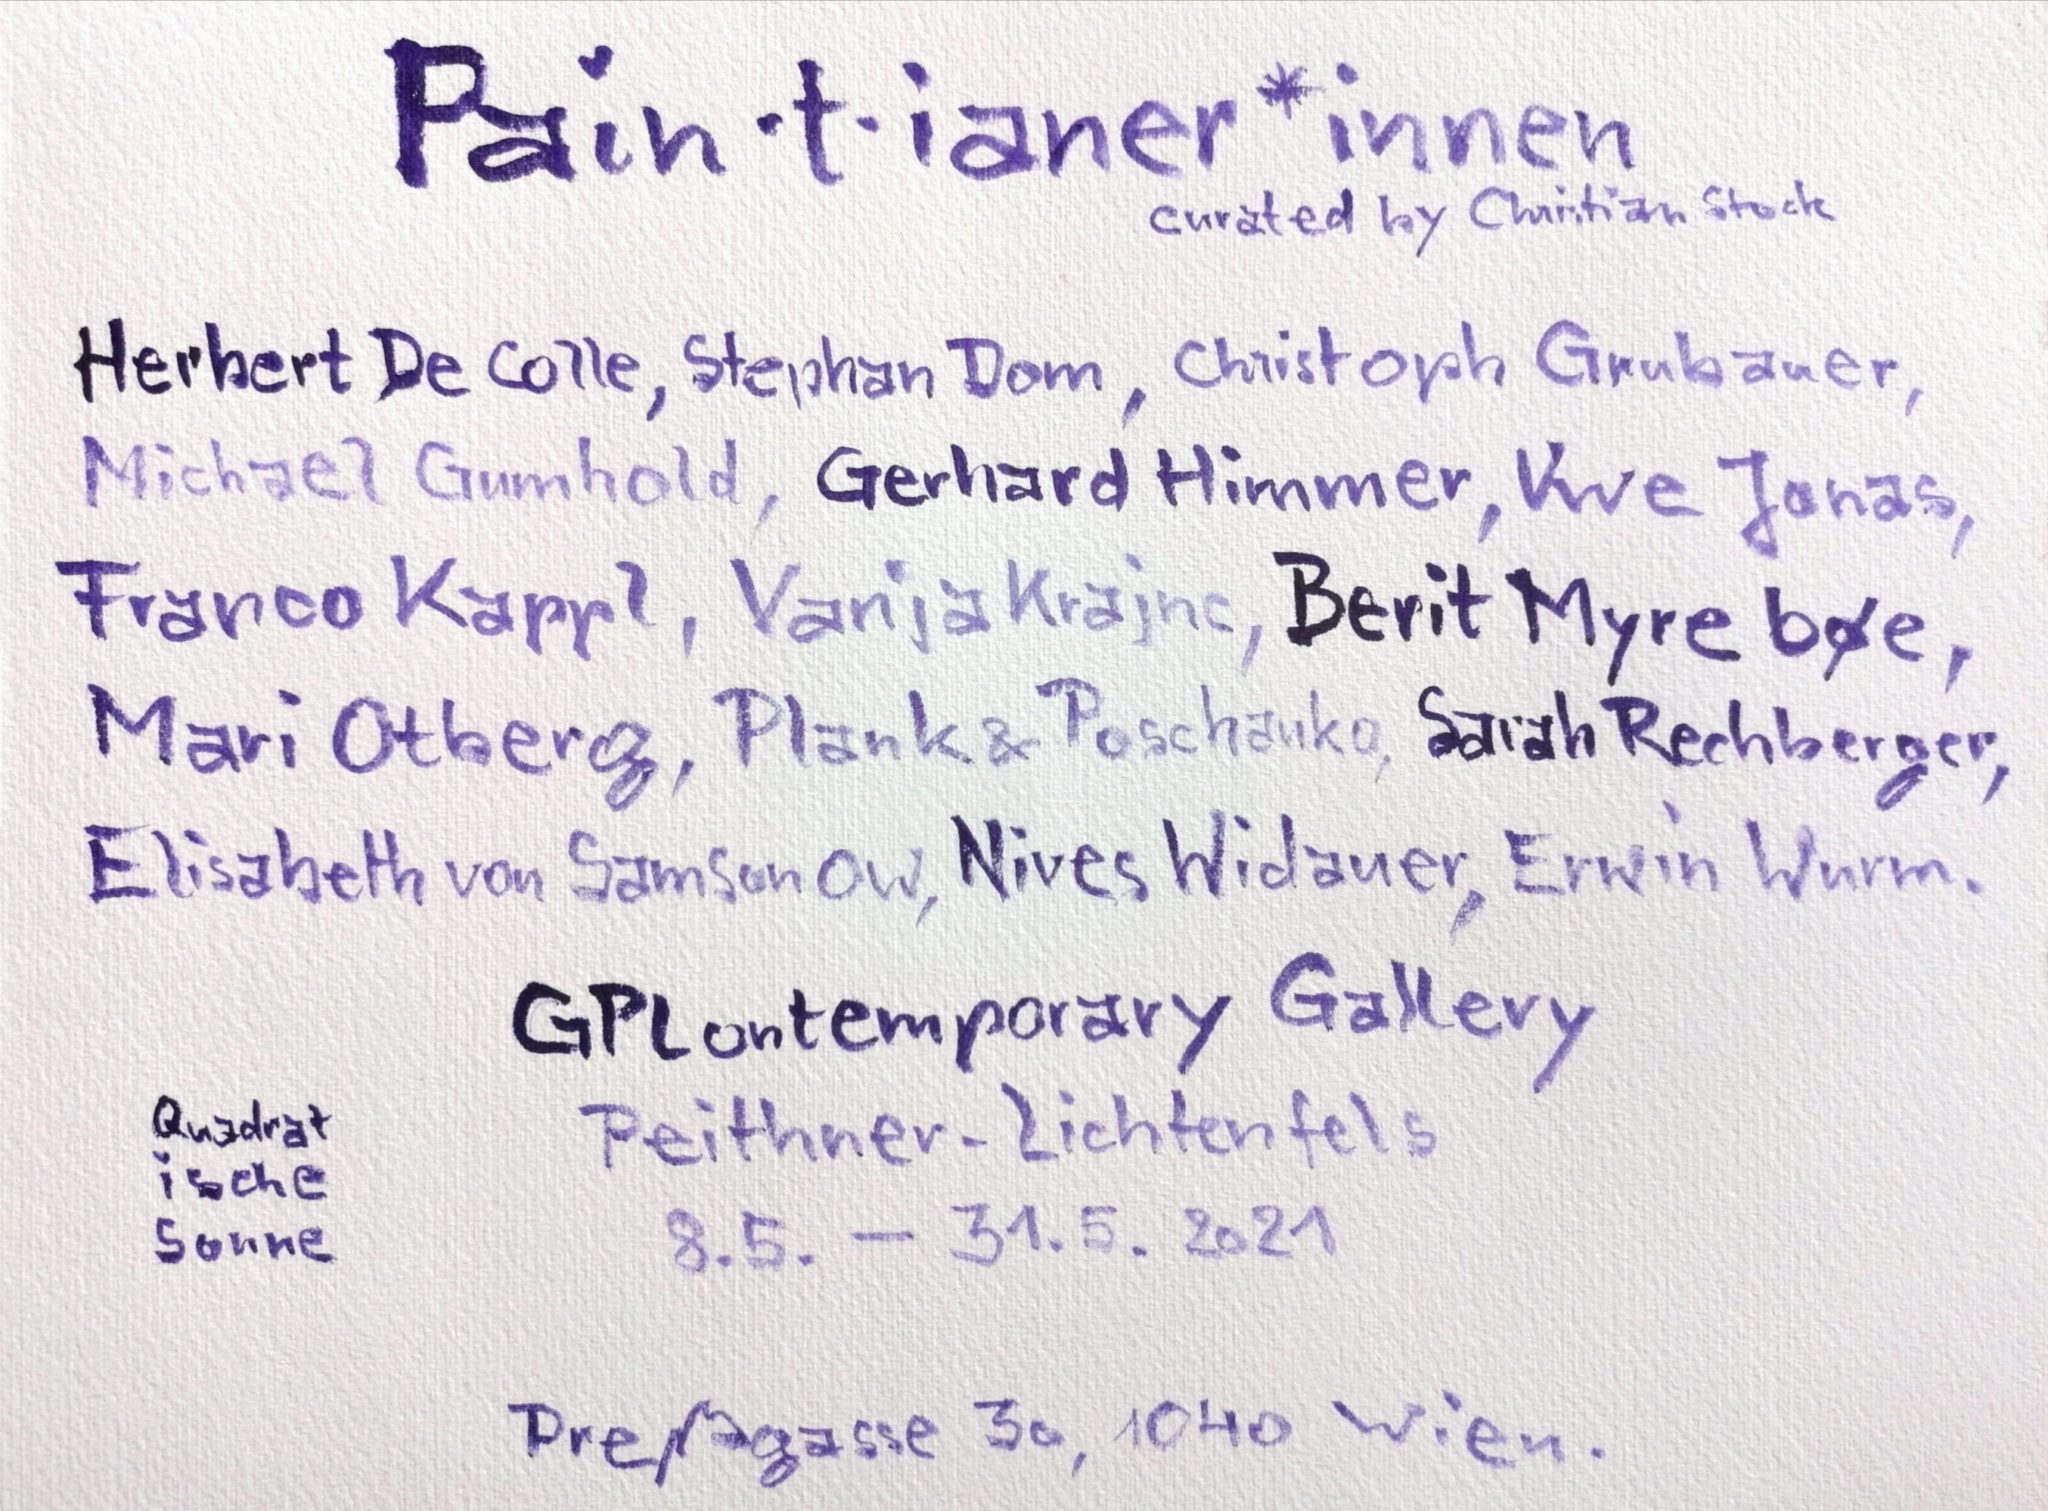 Pain·t·ianer*innen
curated by Christian Stock
Herbert De Colle, Stephan Dom, Christoph Grubauer,
Michael Gumhold, Gerhard Himmer, Kve Jonas,
Franco Kappl, Vanja Krajnc, Berit Myrebøe,
Mari Otberg, Plank & Poschauko, Sarah Rechberger,
Elisabeth von Samsonow, Nives Widauer, Erwin Wurm.
GPLontemporary Gallery
Peithner-Lichtenfels
8.5. – 31.5. 2021
Quadrat
ische
Sonne
Preßgasse 30, 1040 Wien.